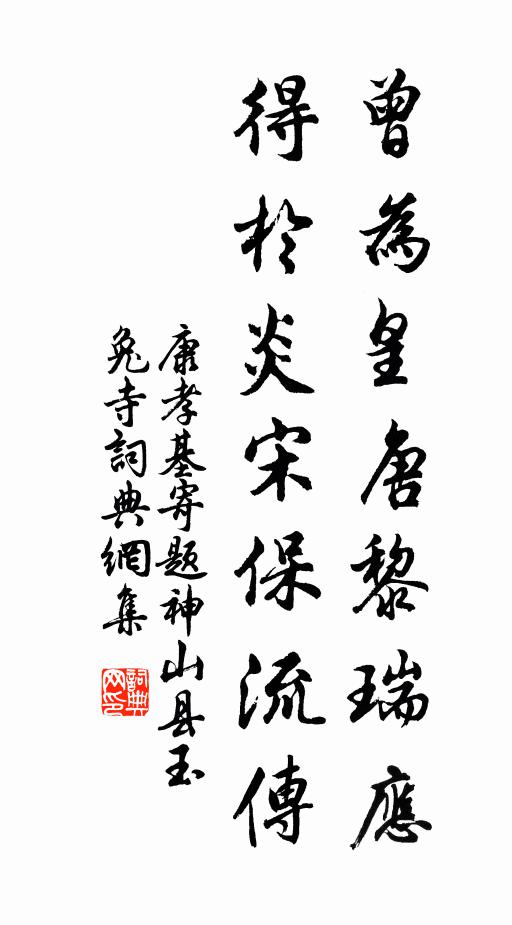 曾為皇唐黎瑞應
得於炎宋保流傳
康孝基寄題神山县玉
兔寺詞典網集
詞典网印